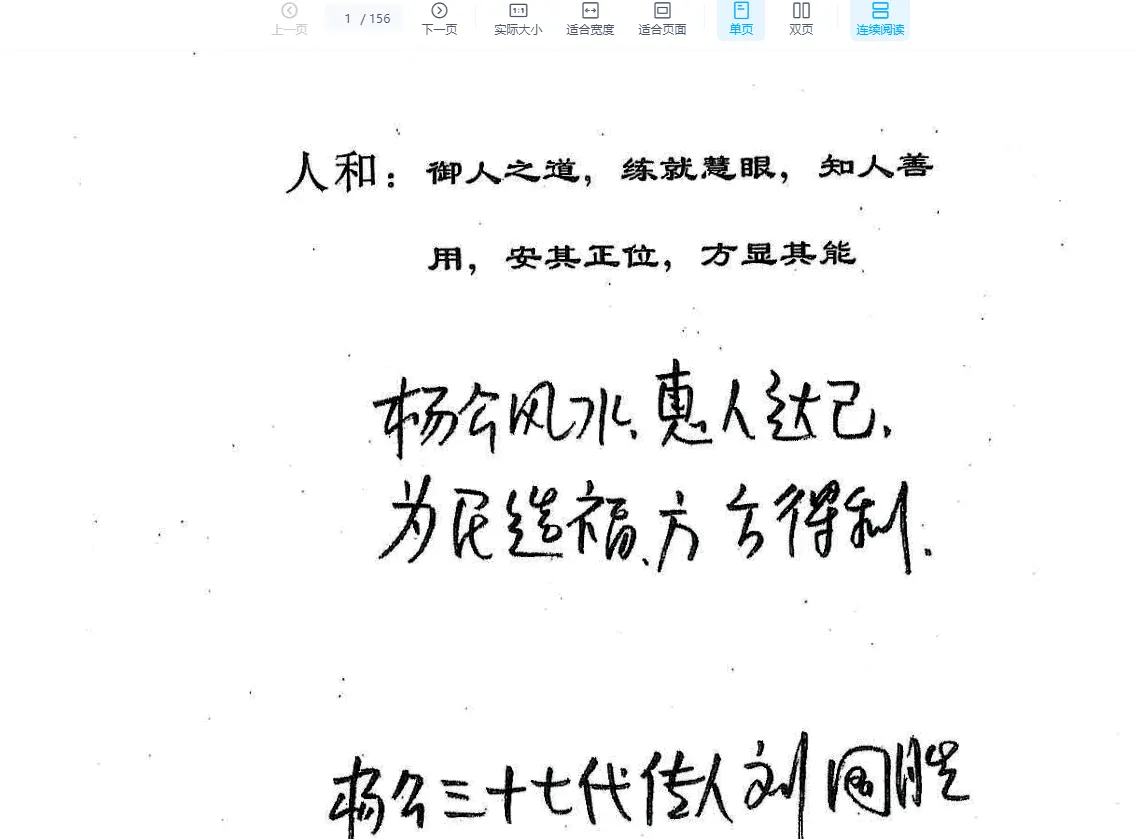 上一页 1 / 156 下一页 1:1 实际大小 适合宽度 适合页面 单页 双页 连续阅读
人和：御人之道，练就慧眼，知人善
用，安其正位，方显其能
杨公风水、惠人达己.
为民造福、方方得利.
杨公三十七代传人刘国胜